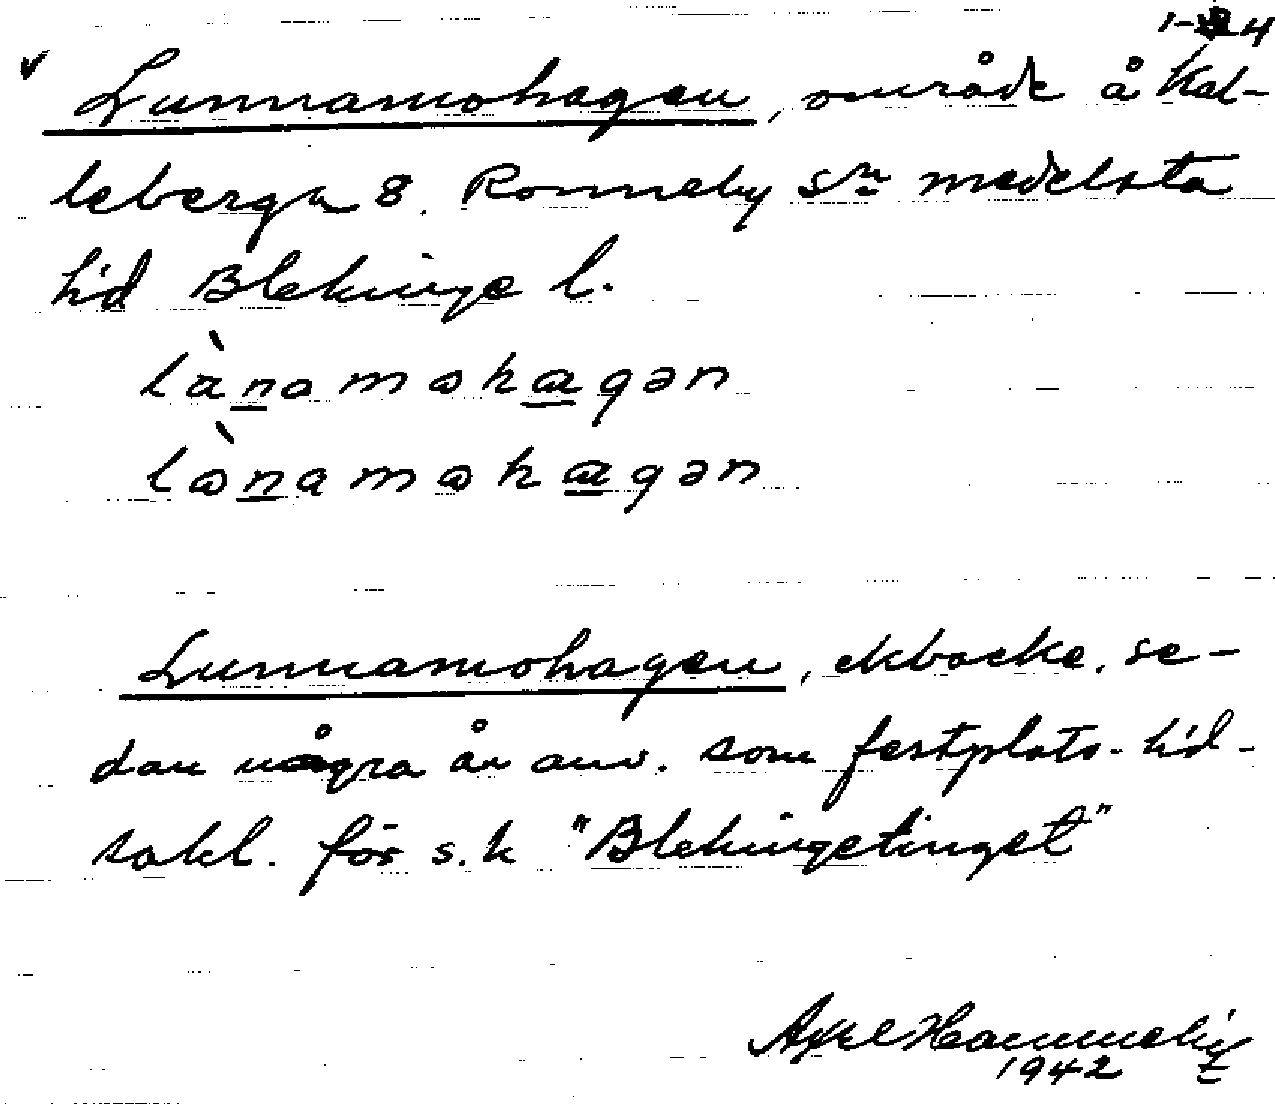 Lunnamohagen, område å Kal-
leberga 8. Ronneby sn medelsta
h'd Blekinge l.
lànamⱺhagən
lⱺ̀namⱺhagən
Lunnamohagen, ekbacke, se-
dan några år anv. som festplats h'd-
sakl. för s.k "Blekingetinget"
Axel
1942